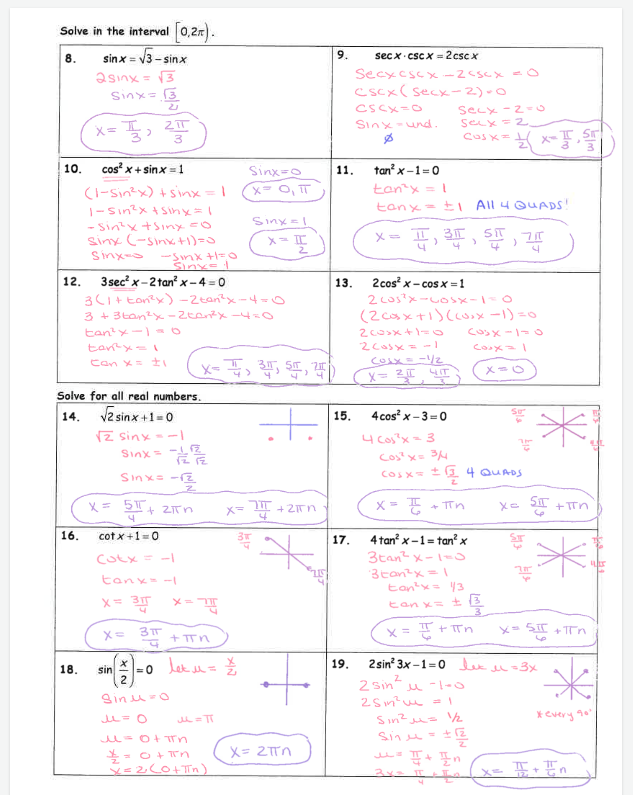 Solve in the interval [0,2π).
8. sin x = √3 – sin x
2 sinx = √3
sinx = √3/2
x = π/3, 2π/3
9. sec x · csc x = 2 csc x
secx cscx – 2cscx = 0
cscx (secx – 2) = 0
cscx = 0 secx – 2 = 0
sinx = und. secx = 2
ø cosx = 1/2 x = π/3, 5π/3
10. cos² x + sin x = 1
(1 – sin²x) + sinx = 1
1 – sin²x + sinx = 1
– sin²x + sinx = 0
sinx (–sinx + 1) = 0
sinx = 0 –sinx + 1 = 0
sinx = 1
sinx = 0
x = 0, π
sinx = 1
x = π/2
11. tan² x – 1 = 0
tan²x = 1
tanx = ±1 All 4 QUADS!
x = π/4, 3π/4, 5π/4, 7π/4
12. 3 sec² x – 2 tan² x – 4 = 0
3(1 + tan²x) – 2tan²x – 4 = 0
3 + 3tan²x – 2tan²x – 4 = 0
tan²x – 1 = 0
tan²x = 1
tan x = ±1
x = π/4, 3π/4, 5π/4, 7π/4
13. 2 cos² x – cos x = 1
2cos²x – cosx – 1 = 0
(2cosx + 1)(cosx – 1) = 0
2cosx + 1 = 0 cosx – 1 = 0
2cosx = –1 cosx = 1
cosx = –1/2
x = 2π/3, 4π/3 x = 0
Solve for all real numbers.
14. √2 sin x + 1 = 0
√2 sinx = –1
sinx = –1/√2 √2/√2
sinx = –√2/2
x = 5π/4 + 2πn x = 7π/4 + 2πn
15. 4 cos² x – 3 = 0
4cos²x = 3
cos²x = 3/4
cosx = ± √3/2 4 QUADS
x = π/6 + πn x = 5π/6 + πn
5π/6
7π/6
16. cot x + 1 = 0
cotx = –1
tanx = –1
x = 3π/4 x = 7π/4
x = 3π/4 + πn
3π/4
7π/4
17. 4 tan² x – 1 = tan² x
3tan²x – 1 = 0
3tan²x = 1
tan²x = 1/3
tanx = ± √3/3
x = π/6 + πn x = 5π/6 + πn
5π/6
7π/6
18. sin(x/2) = 0 let u = x/2
sin u = 0
u = 0 u = π
u = 0 + πn
x/2 = 0 + πn
x = 2(0 + πn)
x = 2πn
19. 2 sin² 3x – 1 = 0 let u = 3x
2 sin² u – 1 = 0
2 sin²u = 1
sin²u = 1/2
sin u = ± √2/2
u = π/4 + π/2 n
3x = π/4 + π/2 n
* every 90°
x = π/12 + π/6 n